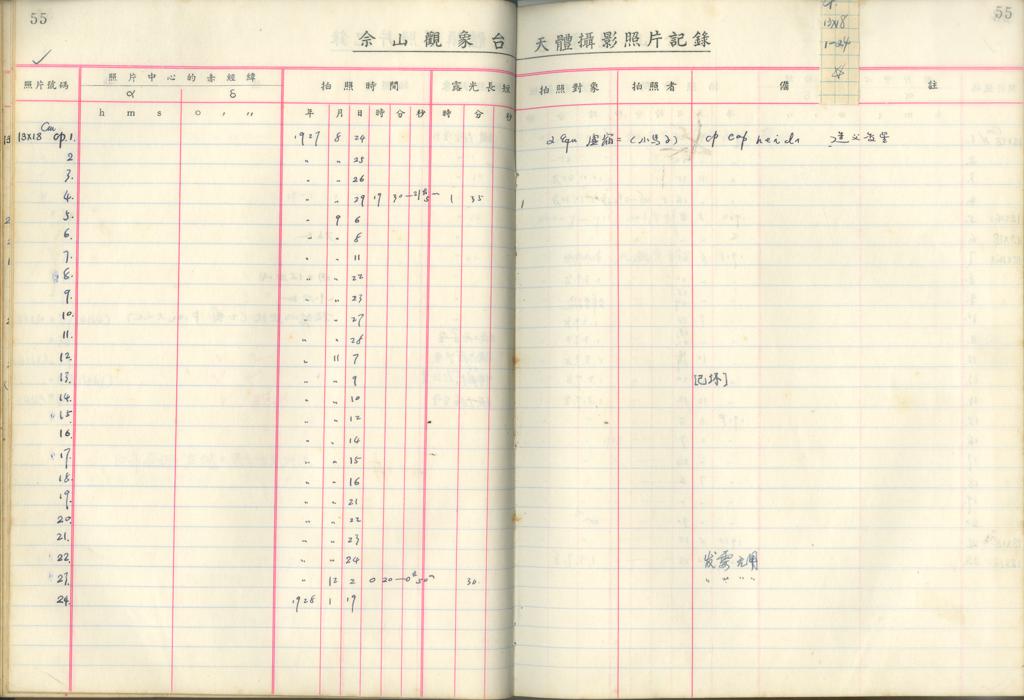 55
55
佘山觀象台 天體攝影照片記錄
13×18
1-24
照片號碼 照片中心的赤經緯 拍照時間 露光長短 拍照對象 拍照者 備 註
α δ
h m s ° ′ ″ 年 月 日 時 分 秒 時 分 秒
13×18 Cm op.1. 1927 8 24 α Equ 虛宿=(小馬α)
2 " " 25
3. " " 26
4. " " 29 19 1 35
5. " 9 6
6. " " 8
7. " " 11
8. " " 22
9. " " 23
10. " " 27
11. " " 28
12. " 11 7
13. " " 9 [已坏]
14. " " 10
15. " " 12
16. " " 14
17. " " 15
18. " " 16
19. " " 21
20. " " 22
21. " " 23
22. " " 24 发雾无用
23. " 12 2 0 20 30 " " " "
24. 1928 1 19